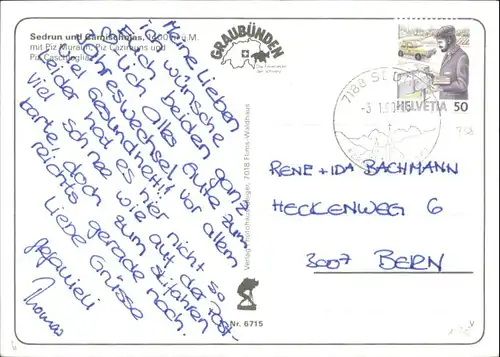 Sedrun und Camischolas, 1400 m ü.M.
mit Piz Muraun, Piz Cazirauns und
Piz Caschleglia
Meine Lieben
Ich wünsche
Euch beiden ganz
viel alles Gute zum
Jahreswechsel, vor allem
Gesundheit!
Leider hat es hier nicht so
viel Schnee wie auf der Post-
karte, doch zum Skifahren
reichts gerade noch.
Liebe Grüsse
Thomas
GRAUBÜNDEN
Die Ferienecke
der Schweiz
Verlag Photohaus Geiger, 7018 Flims-Waldhaus
Nr. 6715
7188 SEDRUN
-3.1.90
HELVETIA 50
RENE + IDA BACHMANN
HECKENWEG 6
3007 BERN